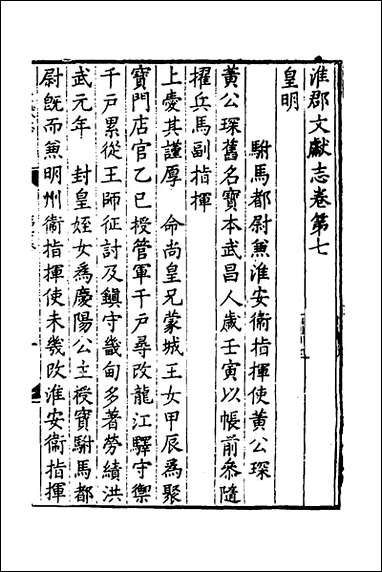 淮郡文獻志卷第七
皇明
駙馬都尉兼淮安衞指揮使黃公琛
黃公琛舊名寶本武昌人歲壬寅以帳前叅隨
擢兵馬副指揮
上愛其謹厚 命尚皇兄蒙城王女甲辰爲聚
寶門店官乙巳授管軍千戶尋改龍江驛守禦
千戶累從王師征討及鎮守畿甸多著勞績洪
武元年 封皇姪女爲慶陽公主授寶駙馬都
尉旣而兼明州衞指揮使未幾改淮安衞指揮